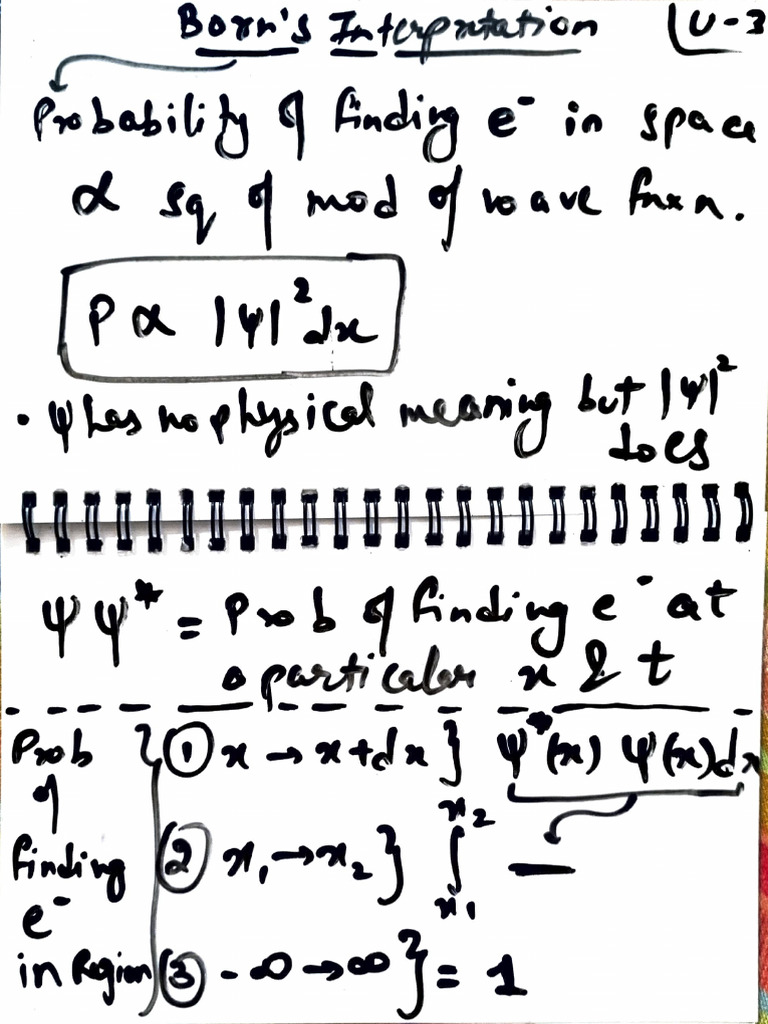 Born's Interpretation U-3
Probability of finding e⁻ in space
∝ sq of mod of wave fnxn.
P ∝ |ψ|² dx
• ψ has no physical meaning but |ψ|²
does
ψ ψ* = Prob of finding e⁻ at
a particular x & t
Prob of finding e⁻ in Region
① x → x+dx } ψ*(x) ψ(x)dx
② x₁ → x₂ } ∫ₓ₁ˣ² —
③ -∞ → ∞ } = 1